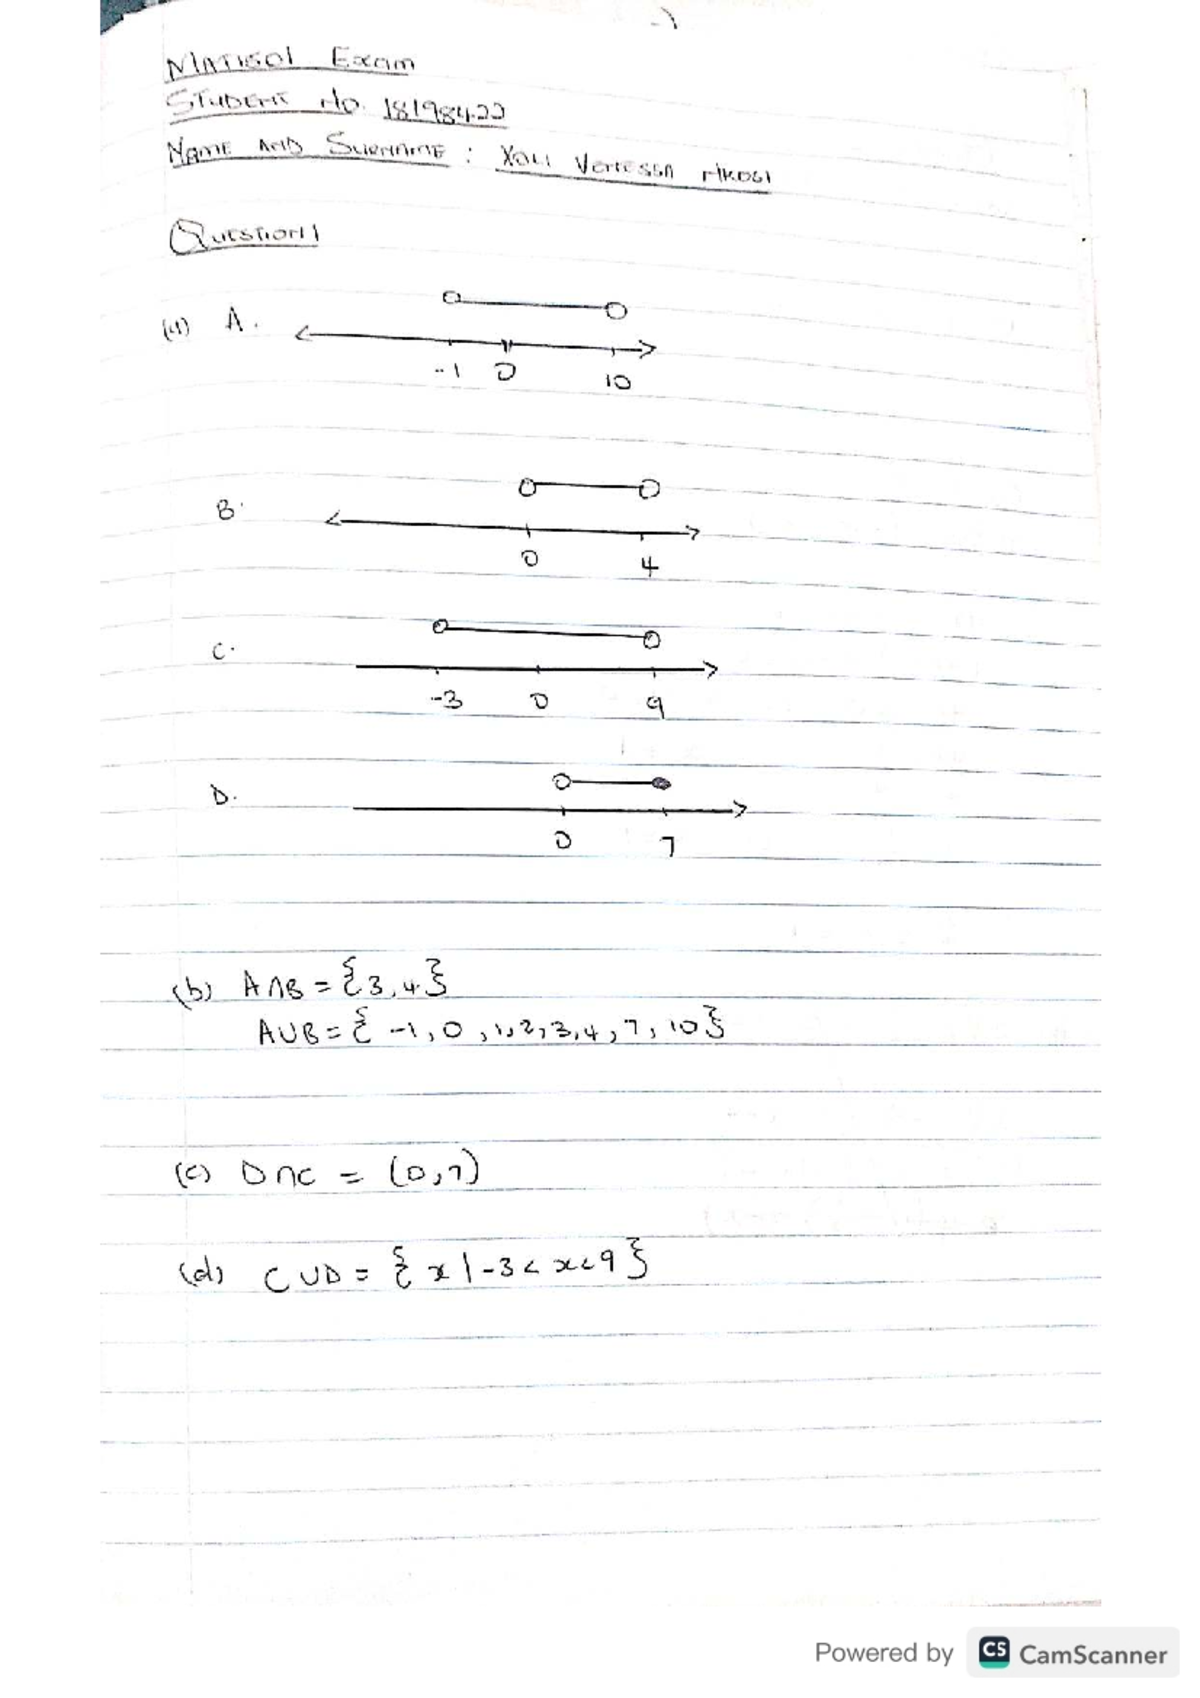 MAT1601 Exam
STUDENT NO. 18198422
NAME AND SURNAME : XOLI VENESSA NKOSI
QUESTION 1
(a) A.
-1 0 10
B.
0 4
C.
-3 0 9
D.
0 7
(b) A∩B = {3,4}
A∪B = { -1, 0, 1, 2, 3, 4, 7, 10}
(c) D∩C = (0,7)
(d) C∪D = { x | -3 < x < 9 }
Powered by CS CamScanner